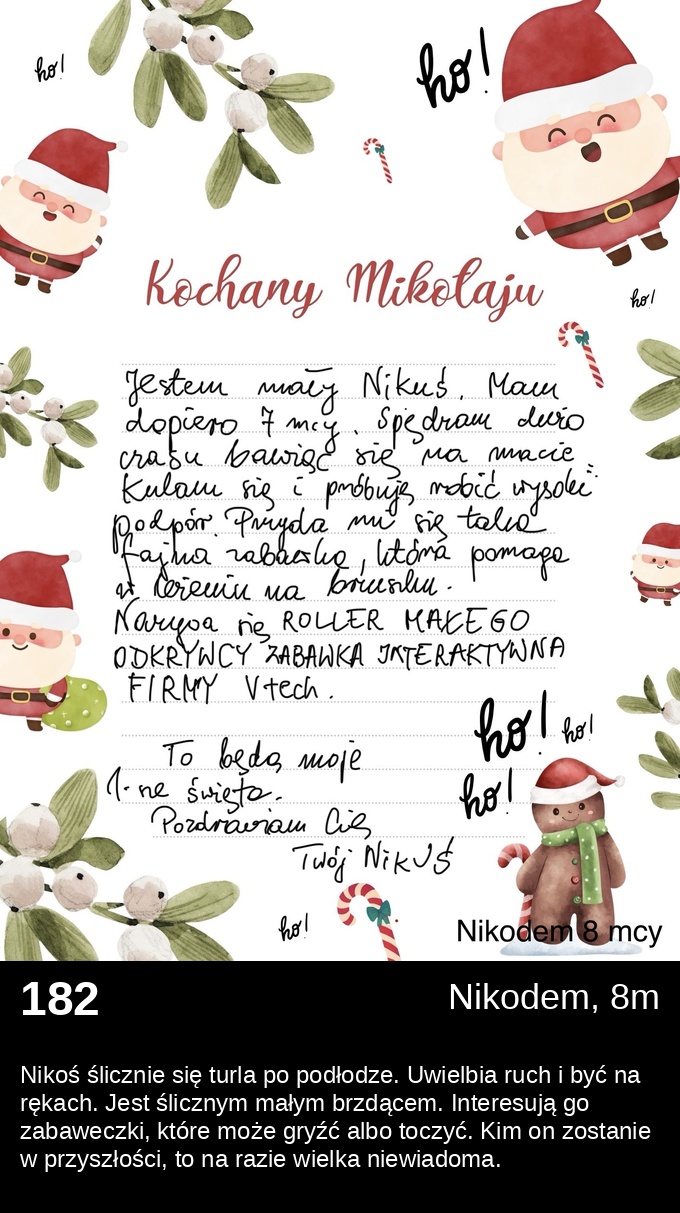 ho!
ho!
Kochany Mikołaju
ho!
Jestem mały Nikuś. Mam
dopiero 7 mcy. Spędzam dużo
czasu bawiąc się na macie
Kulam się i próbuję robić wysoki
podpór. Przyda mi się taka
fajna zabawka, która pomaga
w leżeniu na brzuszku.
Nazywa się ROLLER MAŁEGO
ODKRYWCY ZABAWKA INTERAKTYWNA
FIRMY Vtech.
ho! ho!
To będą moje
1-ne święta.
ho!
Pozdrawiam Cię
Twój NIKUŚ
ho!
Nikodem 8 mcy
182
Nikodem, 8m
Nikoś ślicznie się turla po podłodze. Uwielbia ruch i być na
rękach. Jest ślicznym małym brzdącem. Interesują go
zabaweczki, które może gryźć albo toczyć. Kim on zostanie
w przyszłości, to na razie wielka niewiadoma.